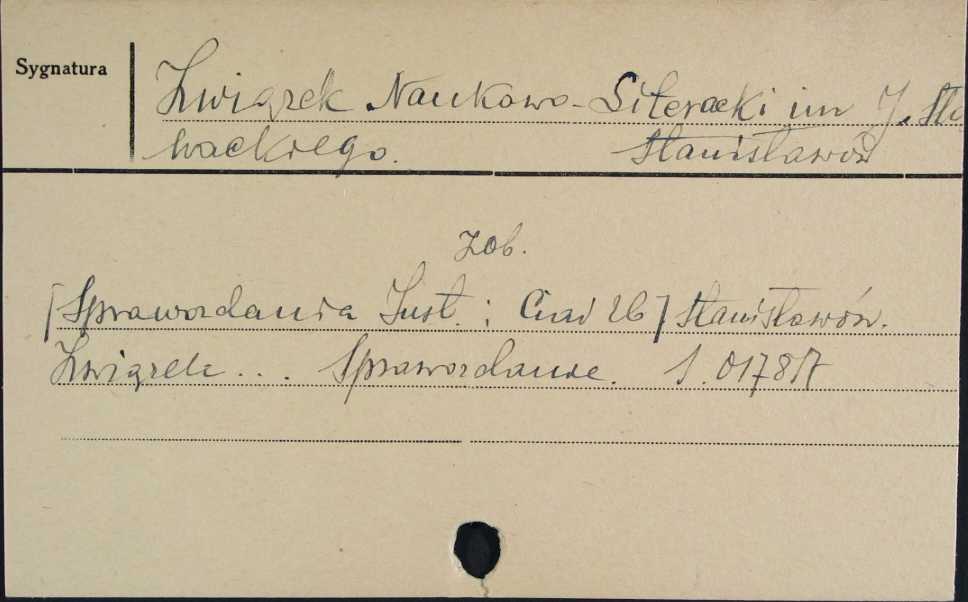 Sygnatura
Związek Naukowo-Literacki im J. Sło
wackiego. Stanisławów
zob.
[Sprawozdania Inst. i Ciał Zb] Stanisławów.
Związek... Sprawozdanie. S. 01787